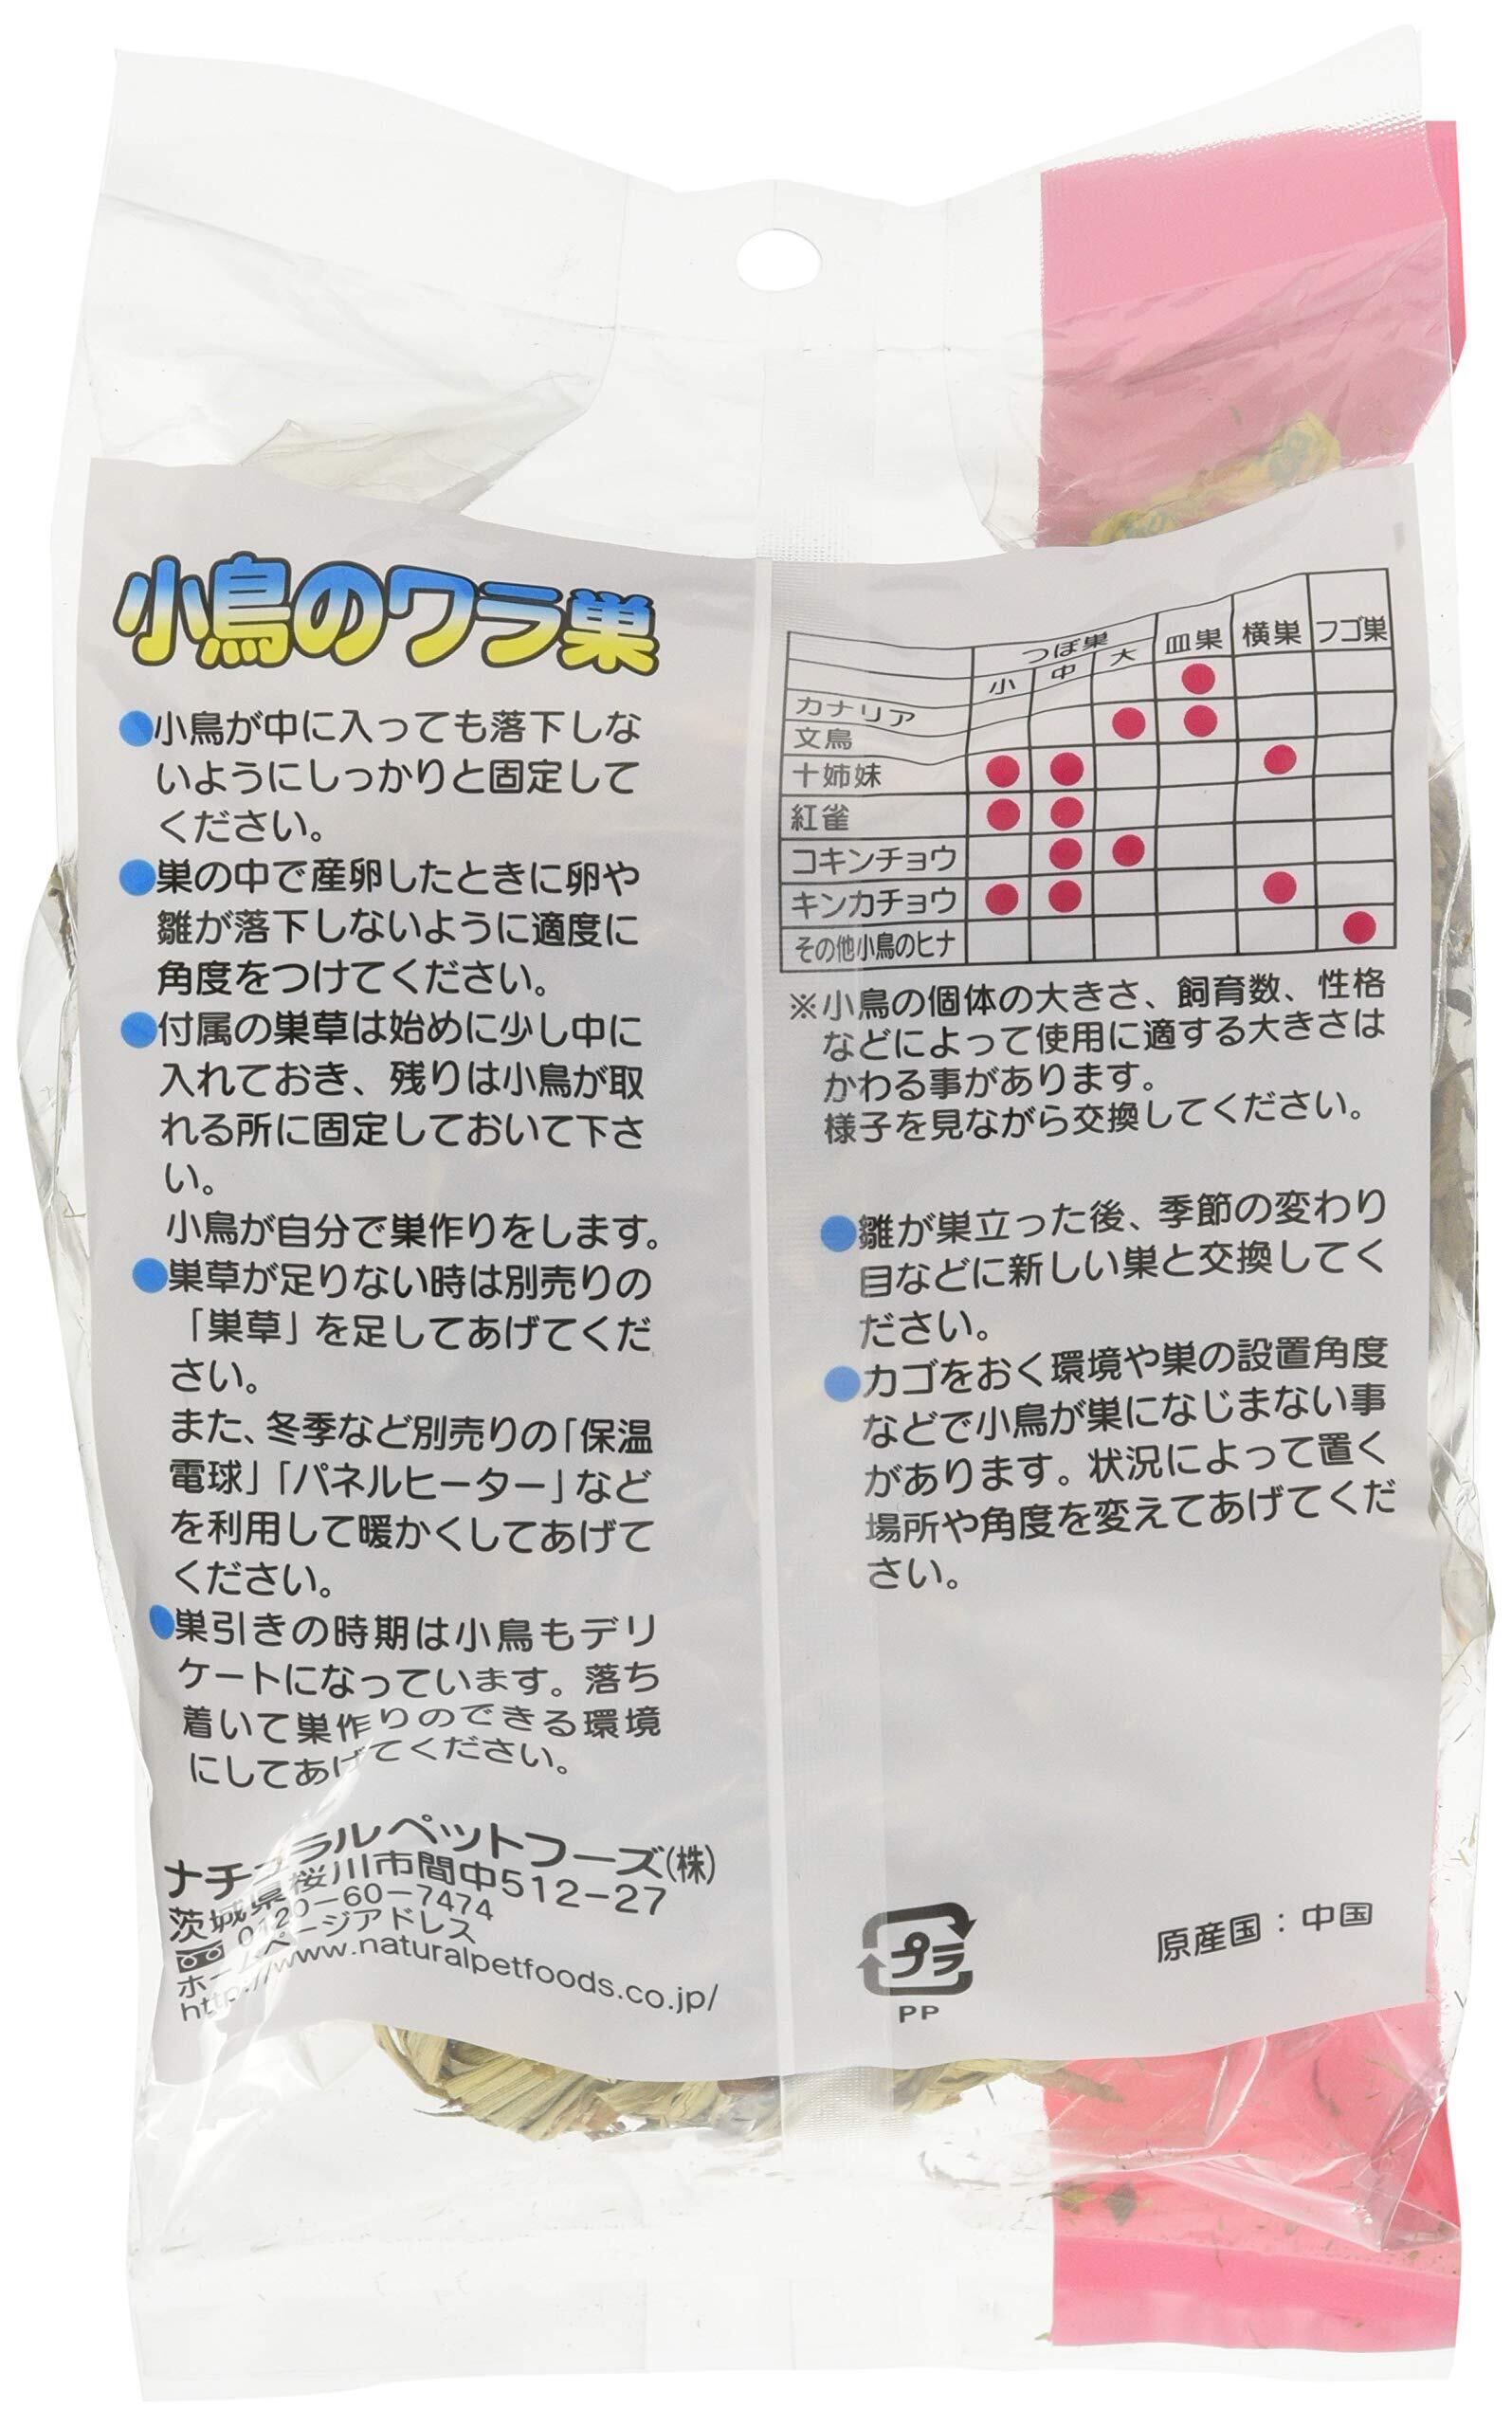 小鳥のワラ巣
●小鳥が中に入っても落下しな
いようにしっかりと固定して
ください。
●巣の中で産卵したときに卵や
雛が落下しないように適度に
角度をつけてください。
●付属の巣草は始めに少し中に
入れておき、残りは小鳥が取
れる所に固定しておいて下さ
い。
小鳥が自分で巣作りをします。
●巣草が足りない時は別売りの
「巣草」を足してあげてくだ
さい。
また、冬季など別売りの「保温
電球」「パネルヒーター」など
を利用して暖かくしてあげて
ください。
●巣引きの時期は小鳥もデリ
ケートになっています。落ち
着いて巣作りのできる環境
にしてあげてください。
ナチュラルペットフーズ(株)
茨城県桜川市間中512-27
0120-60-7474
ホームページアドレス
http://www.naturalpetfoods.co.jp/
つぼ巣 皿巣 横巣 フゴ巣
小 中 大
カナリア ●
文鳥 ● ●
十姉妹 ● ● ●
紅雀 ● ●
コキンチョウ ● ●
キンカチョウ ● ● ●
その他小鳥のヒナ ●
※小鳥の個体の大きさ、飼育数、性格
などによって使用に適する大きさは
かわる事があります。
様子を見ながら交換してください。
●雛が巣立った後、季節の変わり
目などに新しい巣と交換してく
ださい。
●カゴをおく環境や巣の設置角度
などで小鳥が巣になじまない事
があります。状況によって置く
場所や角度を変えてあげてくだ
さい。
プラ
PP
原産国：中国